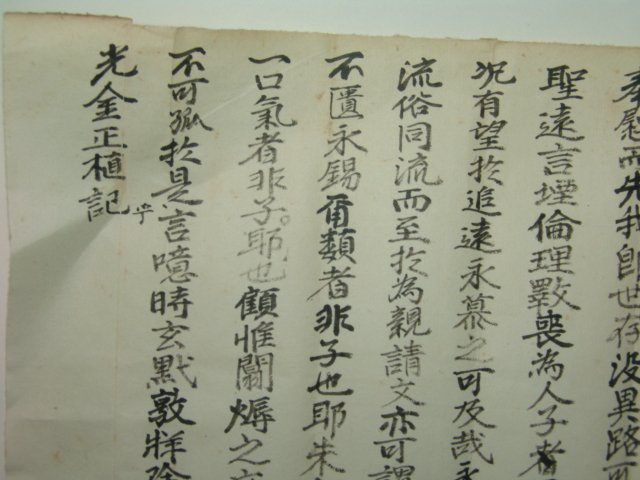 而先我卽世存没異路可
聖遠言堙倫理斁喪為人子者
况有望於追遠永慕之可及哉永
流俗同流而至於為親請文亦可謂
不匱永錫爾類者非子也耶朱
一口氣者非子耶也顧惟闒㒇之
不可孤於是言噫時玄黓敦牂除
光金正植記